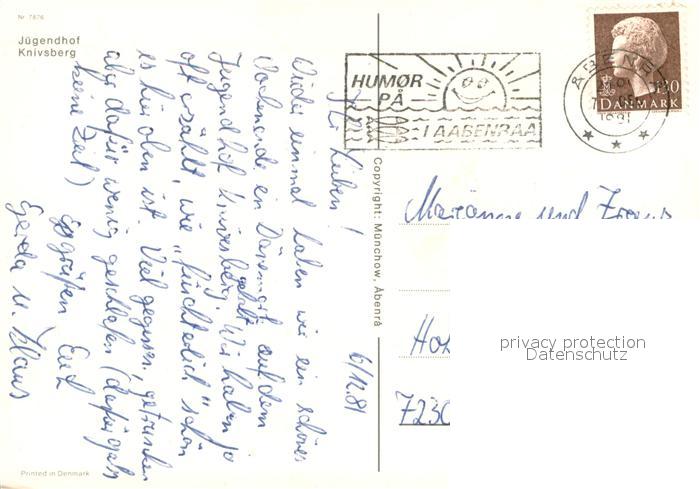 Nr. 7876
Jügendhof
Knivsberg
HUMØR
PÅ
I AABENRAA
ÅBENRÅ
1981
180
DANMARK
6/12.81
Ihr Lieben!
Wieder einmal haben wir ein schönes
Wochenende in Dänemark auf dem
Jugendhof Knivsberg gehabt. Wir haben ja
oft erzählt, wie "fürchterlich" schön
es hier oben ist. Viel gegessen, getrunken
aber dafür wenig geschlafen (dafür gabs
keine Zeit)
Es grüßen Euch
Gerda u. Klaus
Copyright: Münchow, Åbenrå
Marianne und Franz
Ho
723
privacy protection
Datenschutz
Printed in Denmark